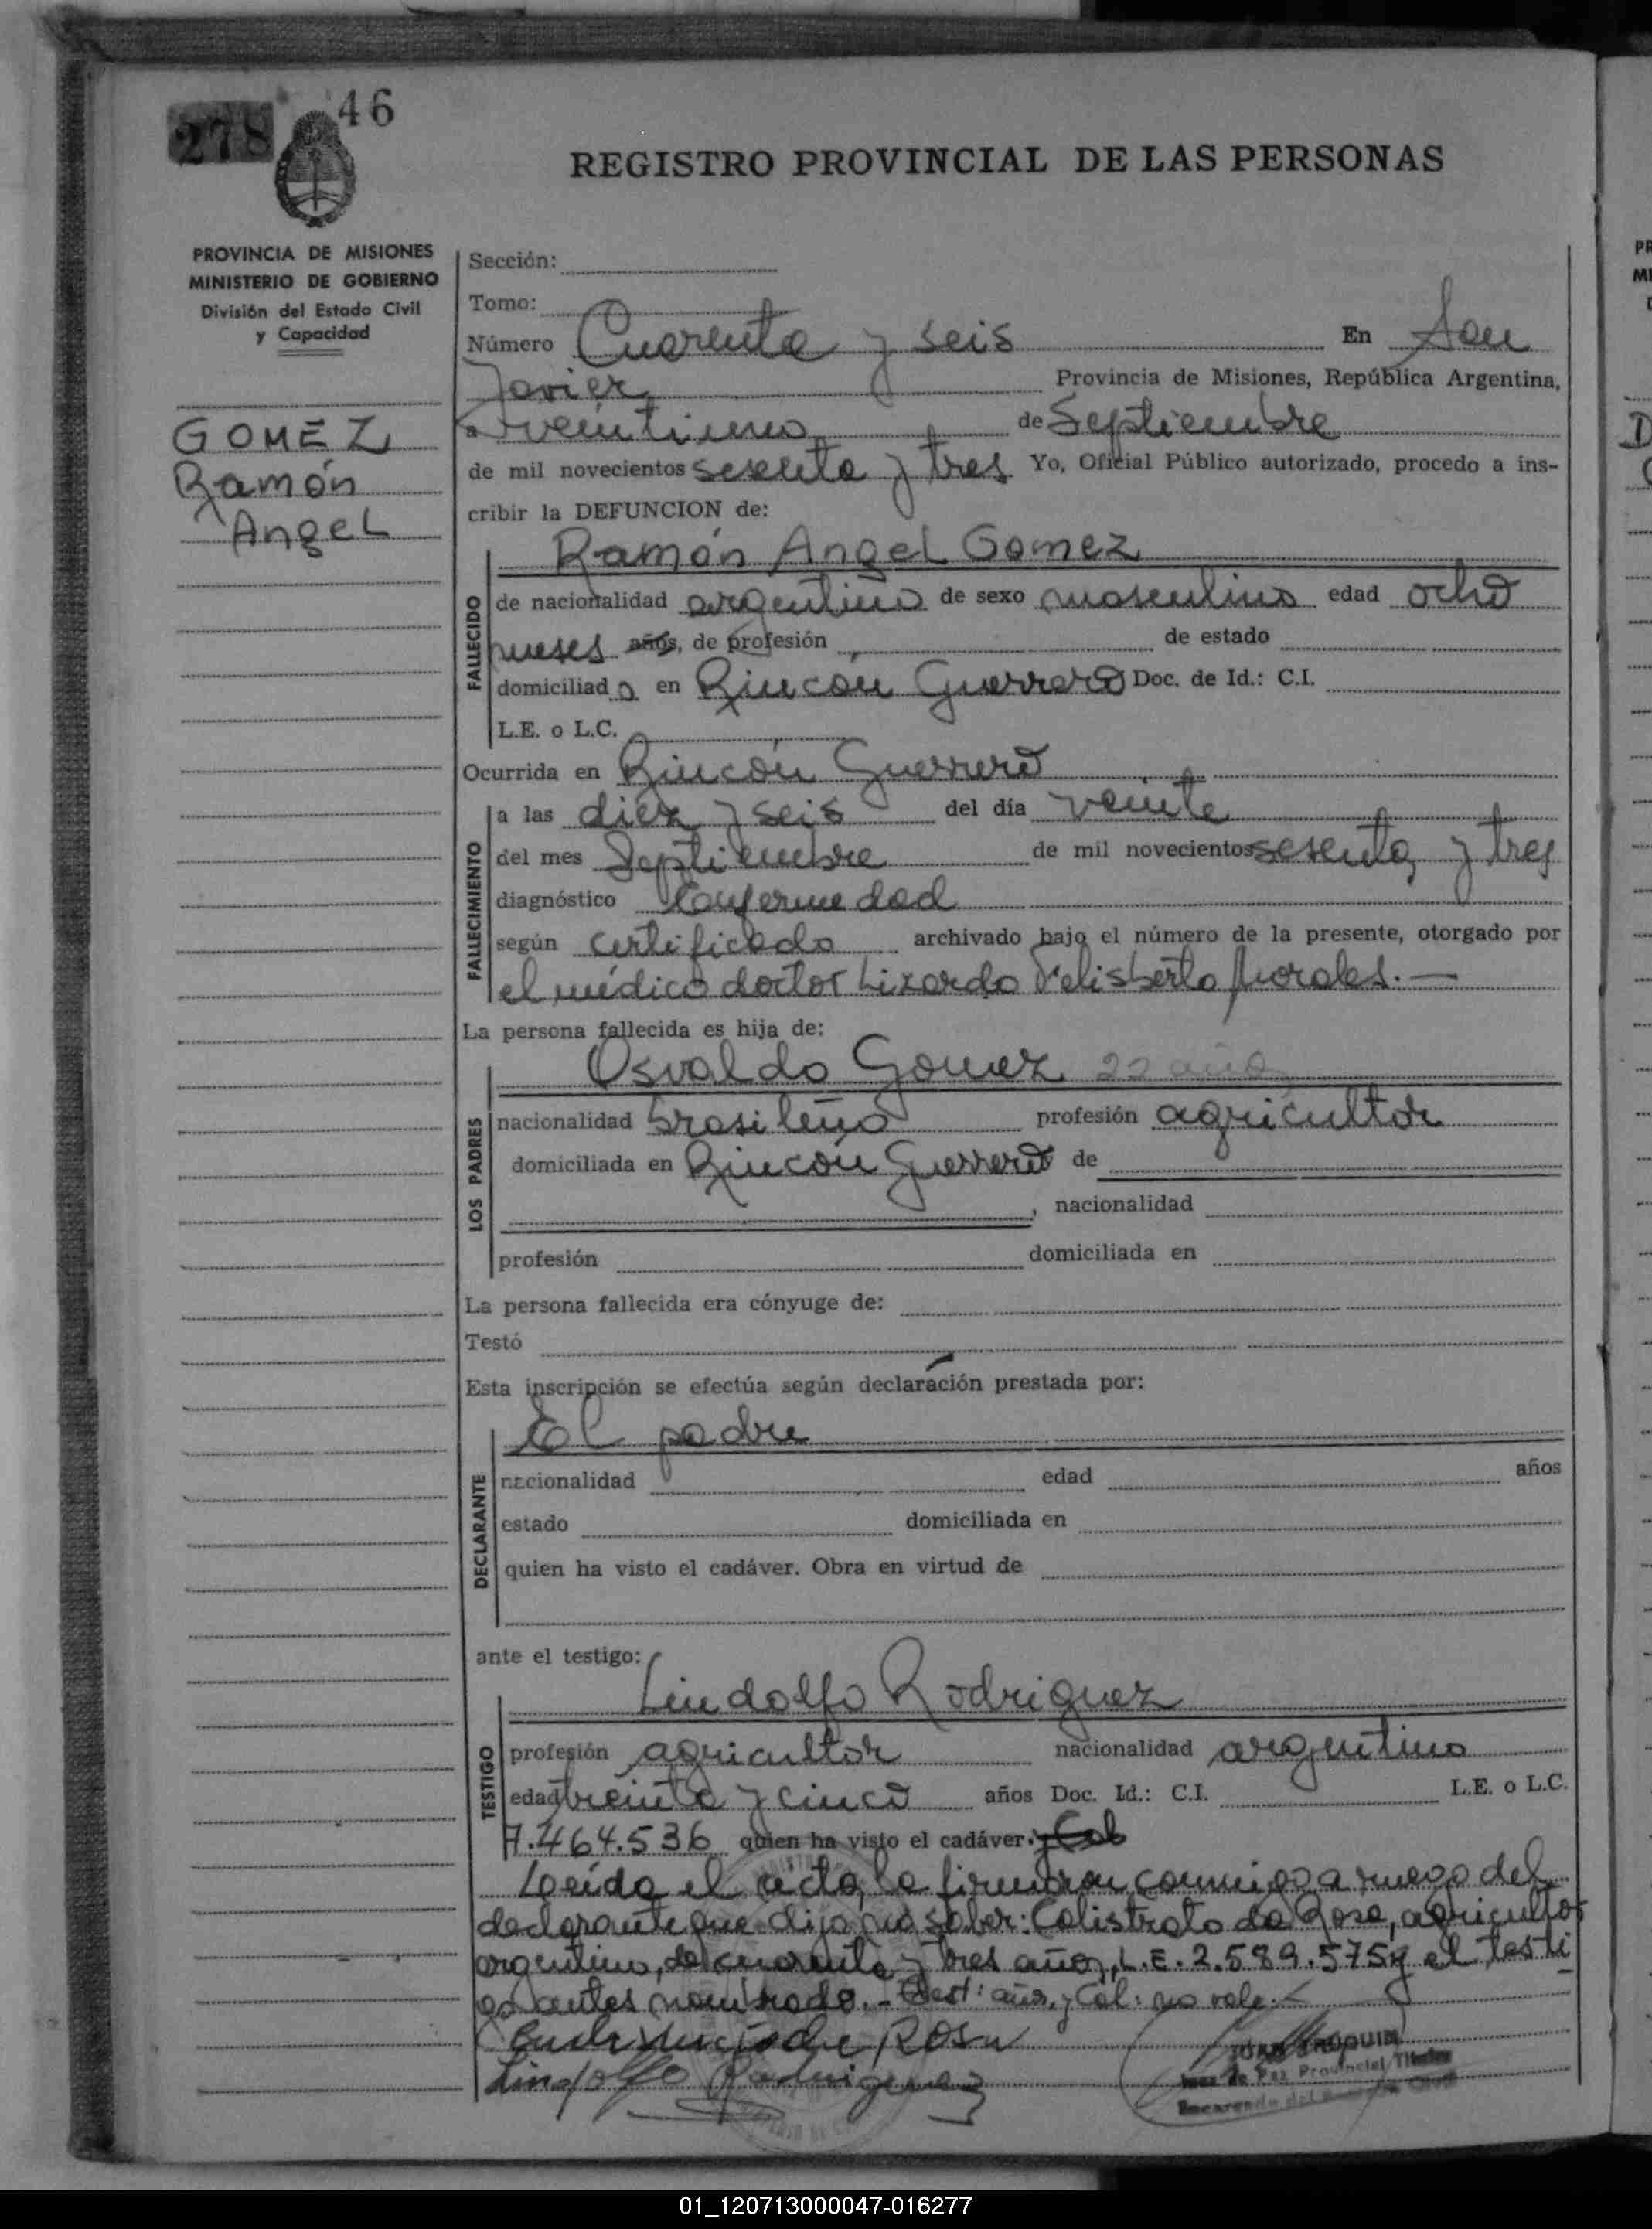 278 46
REGISTRO PROVINCIAL DE LAS PERSONAS
PROVINCIA DE MISIONES
MINISTERIO DE GOBIERNO
División del Estado Civil
y Capacidad
GOMEZ
Ramón
Angel
Sección:
Tomo:
Número Cuarenta y seis En San
Javier Provincia de Misiones, República Argentina,
a veintiuno de Septiembre
de mil novecientos sesenta y tres Yo, Oficial Público autorizado, procedo a ins-
cribir la DEFUNCION de:
Ramón Angel Gomez
FALLECIDO
de nacionalidad argentino de sexo masculino edad ocho
meses años, de profesión de estado
domiciliado en Rincón Guerrero Doc. de Id.: C.I.
L.E. o L.C.
Ocurrida en Rincón Guerrero
FALLECIMIENTO
a las diez y seis del día veinte
del mes Septiembre de mil novecientos sesenta y tres
diagnóstico Enfermedad
según certificado archivado bajo el número de la presente, otorgado por
el médico doctor Lizardo Felisberto Morales.—
La persona fallecida es hija de:
Osvaldo Gomez 22 años
LOS PADRES
nacionalidad brasileño profesión agricultor
domiciliada en Rincón Guerrero de
, nacionalidad
profesión domiciliada en
La persona fallecida era cónyuge de:
Testó
Esta inscripción se efectúa según declaración prestada por:
El padre
DECLARANTE
nacionalidad edad años
estado domiciliada en
quien ha visto el cadáver. Obra en virtud de
ante el testigo:
Lindolfo Rodriguez
TESTIGO
profesión agricultor nacionalidad argentino
edad treinta y cinco años Doc. Id.: C.I. L.E. o L.C.
7.464.536 quien ha visto el cadáver. y Cal
Leída el acta, la firmaron conmigo a ruego del
declarante que dijo no saber: Calistrato da Rosa, agricultor
argentino, de cuarenta y tres años, L.E. 2.589.575 y el testi
go antes nombrado.- Test: años, y Cal: no vale.-
Rosa
Lindolfo Rodriguez
JUAN
Juez de Paz Provincial Titular
Encargado del Registro Civil
01_120713000047-016277